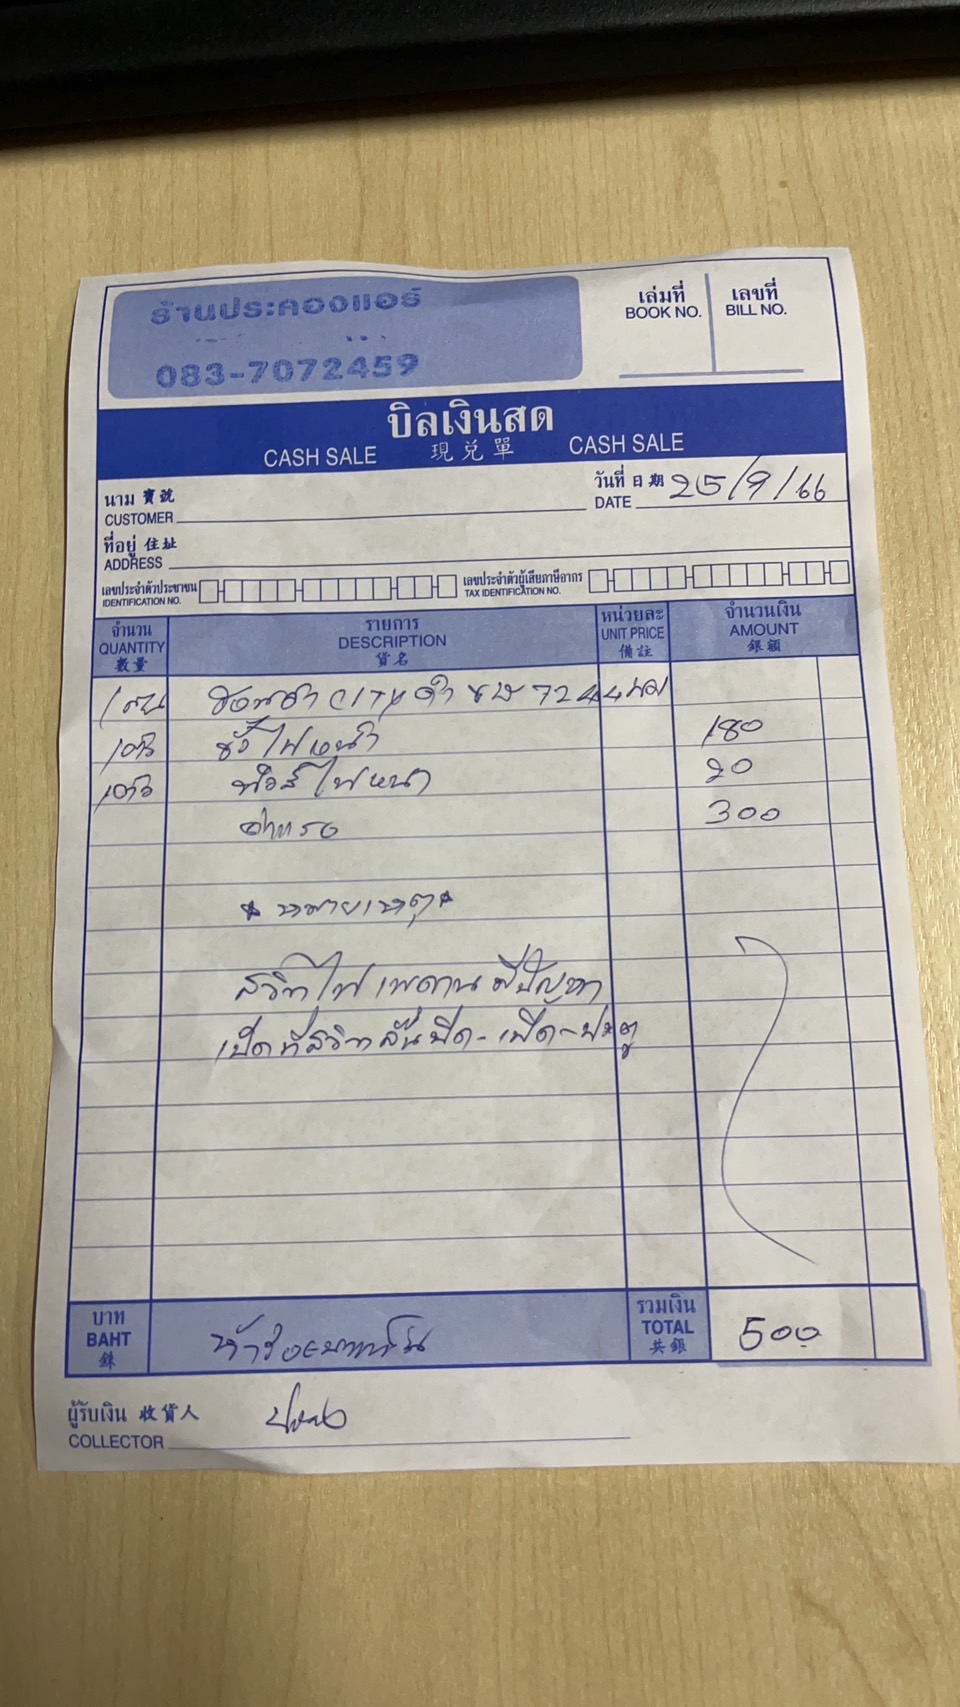 ร้านประคองแอร์
083-7072459
เล่มที่ เลขที่
BOOK NO. BILL NO.
บิลเงินสด
CASH SALE 現兌單 CASH SALE
นาม 寶號 วันที่ 日期 25/9/66
CUSTOMER DATE
ที่อยู่ 住址
ADDRESS
เลขประจำตัวประชาชน เลขประจำตัวผู้เสียภาษีอากร
IDENTIFICATION NO. TAX IDENTIFICATION NO.
จำนวน รายการ หน่วยละ จำนวนเงิน
QUANTITY DESCRIPTION UNIT PRICE AMOUNT
數量 貨名 備註 銀額
1 คัน ฮอนด้า CITY ดำ 7244
1 ตัว ขั้วไฟหน้า 180
1 ตัว ไฟหน้า 20
ค่าแรง 300
* หมายเหตุ *
สวิทไฟเพดานมีปัญหา
เปิดที่สวิท ปิด-เปิด-ประตู
บาท รวมเงิน
BAHT ห้าร้อยบาทถ้วน TOTAL 500
銖 共銀
ผู้รับเงิน 收貨人
COLLECTOR